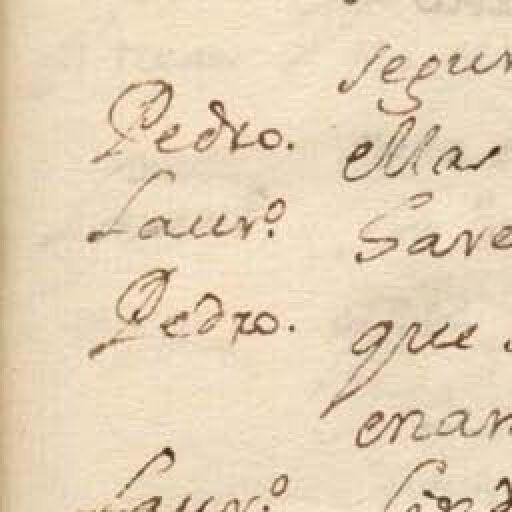 segun
Pedro. ellas
Laurº. Gare
Pedro. que
enan
Laurº.